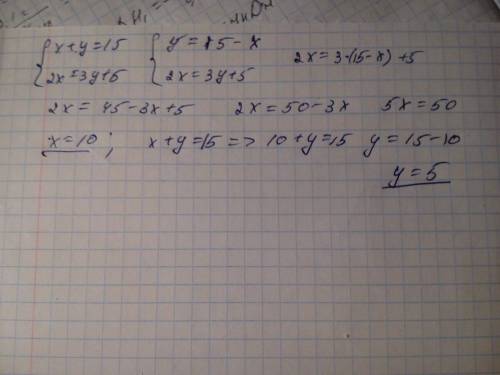 x+y=15 y=15-x 2x=3·(15-x)+5
2x=3y+5 2x=3y+5
2x=45-3x+5 2x=50-3x 5x=50
x=10; x+y=15=>10+y=15 y=15-10
y=5